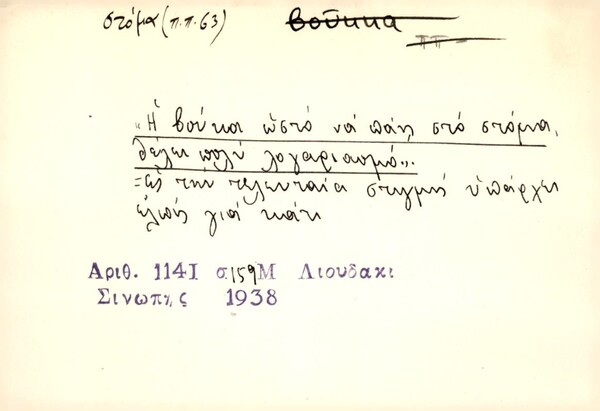 στόμα (π.π. 63) βούκκα
ππ
"Ἡ βούκα ὥστό νά πάῃ στό στόμα,
θέλει πολύ λογαριασμό".
=εἰς τήν τελευταία στιγμή ὑπάρχει
ἐλπίς γιά κάτι
Αριθ. 1141 σ. 159 Μ Λιουδακι
Σινωπης 1938